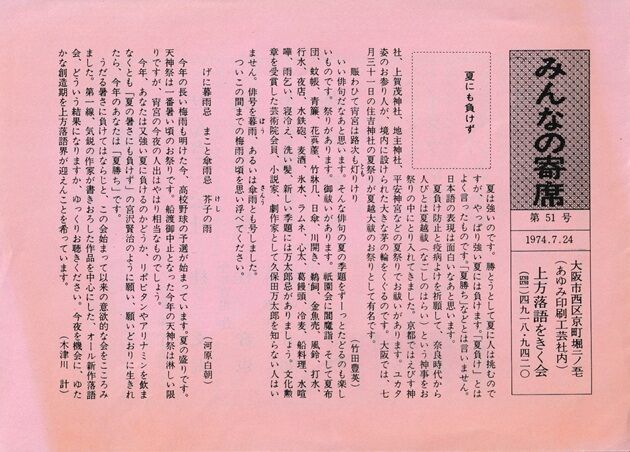 みんなの寄席
第51号
1974.7.24
大阪市西区京町堀二ノ五
(あゆみ印刷工芸社内)
上方落語をきく会
(四四一)四九一八・九四二〇
夏にも負けず
夏は強いのです。勝とうとして夏に人は挑むので
すが、やっぱり強い夏には負けます。「夏負け」とは
よく言ったものです。「夏勝ち」などとは言いません。
日本語の表現は面白いなあと思います。
夏負け防止と疫病よけを祈願して、奈良時代から
人びとは夏越祓(なごしのはらい)という神事をお
祭りの中にとり入れてきました。京都ではえびす神
社、上賀茂神社、地主神社、平安神宮などの夏祭りでお祓いがあります。ユカタ
姿のお参り人が、境内に設けられた大きな茅の輪をくぐるのです。大阪では、七
月三十一日の住吉神社の夏祭りが夏越大祓のお祭りとして有名です。
賑わひて宵宮は路次も灯りけり
(竹田豊英)
いい俳句だなあと思います。そんな俳句の夏の季題をずーっとたどるのも楽し
いものです。祭りがあります。御祓いがあります。祇園会に閻魔詣、そして夏布
団、蚊帳、青簾、花茣蓙、竹牀几、日傘、川開き、鵜飼、金魚売、風鈴、打水、
行水、夜店、水鉄砲、麦酒、氷水、ラムネ、心太、葛饅頭、冷麦、船料理、水喧
嘩、雨乞い、寝冷え、洗い髪、新しい季題には万太郎忌がありましょう。文化勲
章を受賞した芸術院会員、小説家、劇作家として久保田万太郎を知らない人はい
ません。俳号を暮雨、あるいは傘雨とも号しました。
ついこの間までの梅雨の頃を思い浮べてください。
げに暮雨忌 まこと傘雨忌 芥子の雨
(河原白朝)
今年の長い梅雨も明けた今、高校野球の予選が始まっています。夏の盛りです。
天神祭は一番暑い頃のお祭りです。船渡御中止となった今年の天神祭は淋しい限
りですが、宵宮の今夜の人出はやはり相当なものでしょう。
今年、あなたは又強い夏に負けるのかどうか、リポビタンやアリナミンを飲ま
なくとも「夏の暑さにも負けず」の宮沢賢治のように願い、願いどおりに生きれ
たら、今年のあなたは「夏勝ち」です。
うだる暑さに負けてはならじと、この会始まって以来の意欲的な会をこころみ
ました。第一線、気鋭の作家が書きおろした作品を中心にした、オール新作落語
会、どういう結果になりますか、ゆっくりお聴きください。今夜を機会に、ゆた
かな創造期を上方落語界が迎えんことを希っています。
(木津川 計)